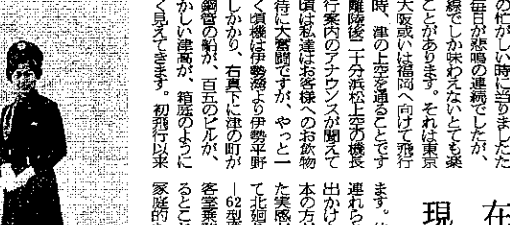 の忙がしい時に当りましたた
毎日が悲鳴の連続でしたが、
線でしか味わえないとても楽
ことがあります。それは東京
大阪或いは福岡へ向けて飛行
時、津の上空を通ることです
離陸後二十分浜松上空の機長
行案内のアナウンスが聞えて
頃は私達はお客様へのお飲物
待に大奮闘ですが、やっと一
く頃機は伊勢湾より伊勢平野
しかかり、右真下に津の町が
鋼管の船が、百五のビルが、
かしい津高が、箱庭のように
く見えてきます。初飛行以来
在
現
ます。
連れら
出かけ
本の方
た実感
て北廻
―62型
客室乗
るとこ
家庭的